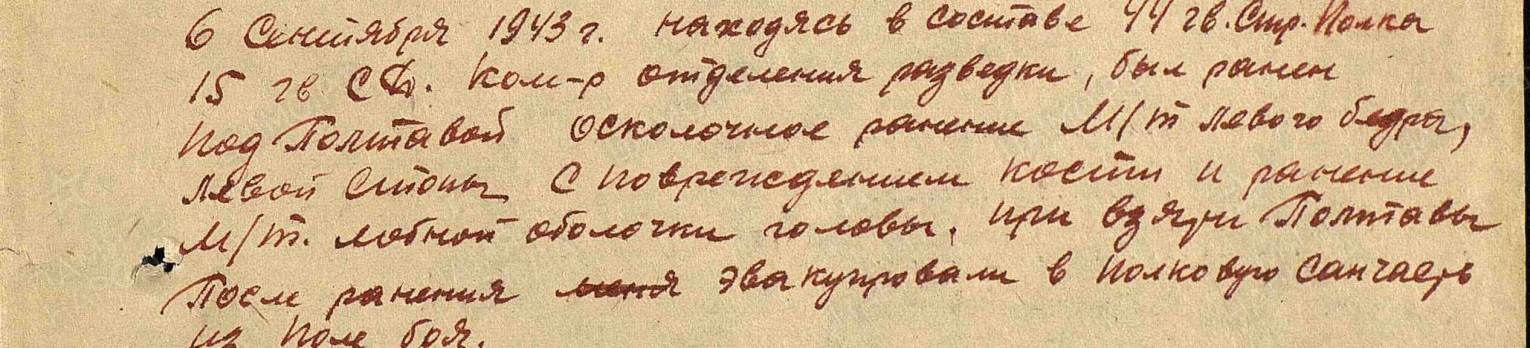 6 Сентября 1943 г. находясь в составе 44 гв. Стр. Полка
15 гв СД. Ком-р отделения разведки, был ранен
под Полтавой Осколочное ранение М/т левого бедра,
левой стопы с повреждением кости и ранение
М/т. лобной оболочки головы. при взяти Полтавы
После ранения меня эвакуировали в полковую санчасть
из поле боя.